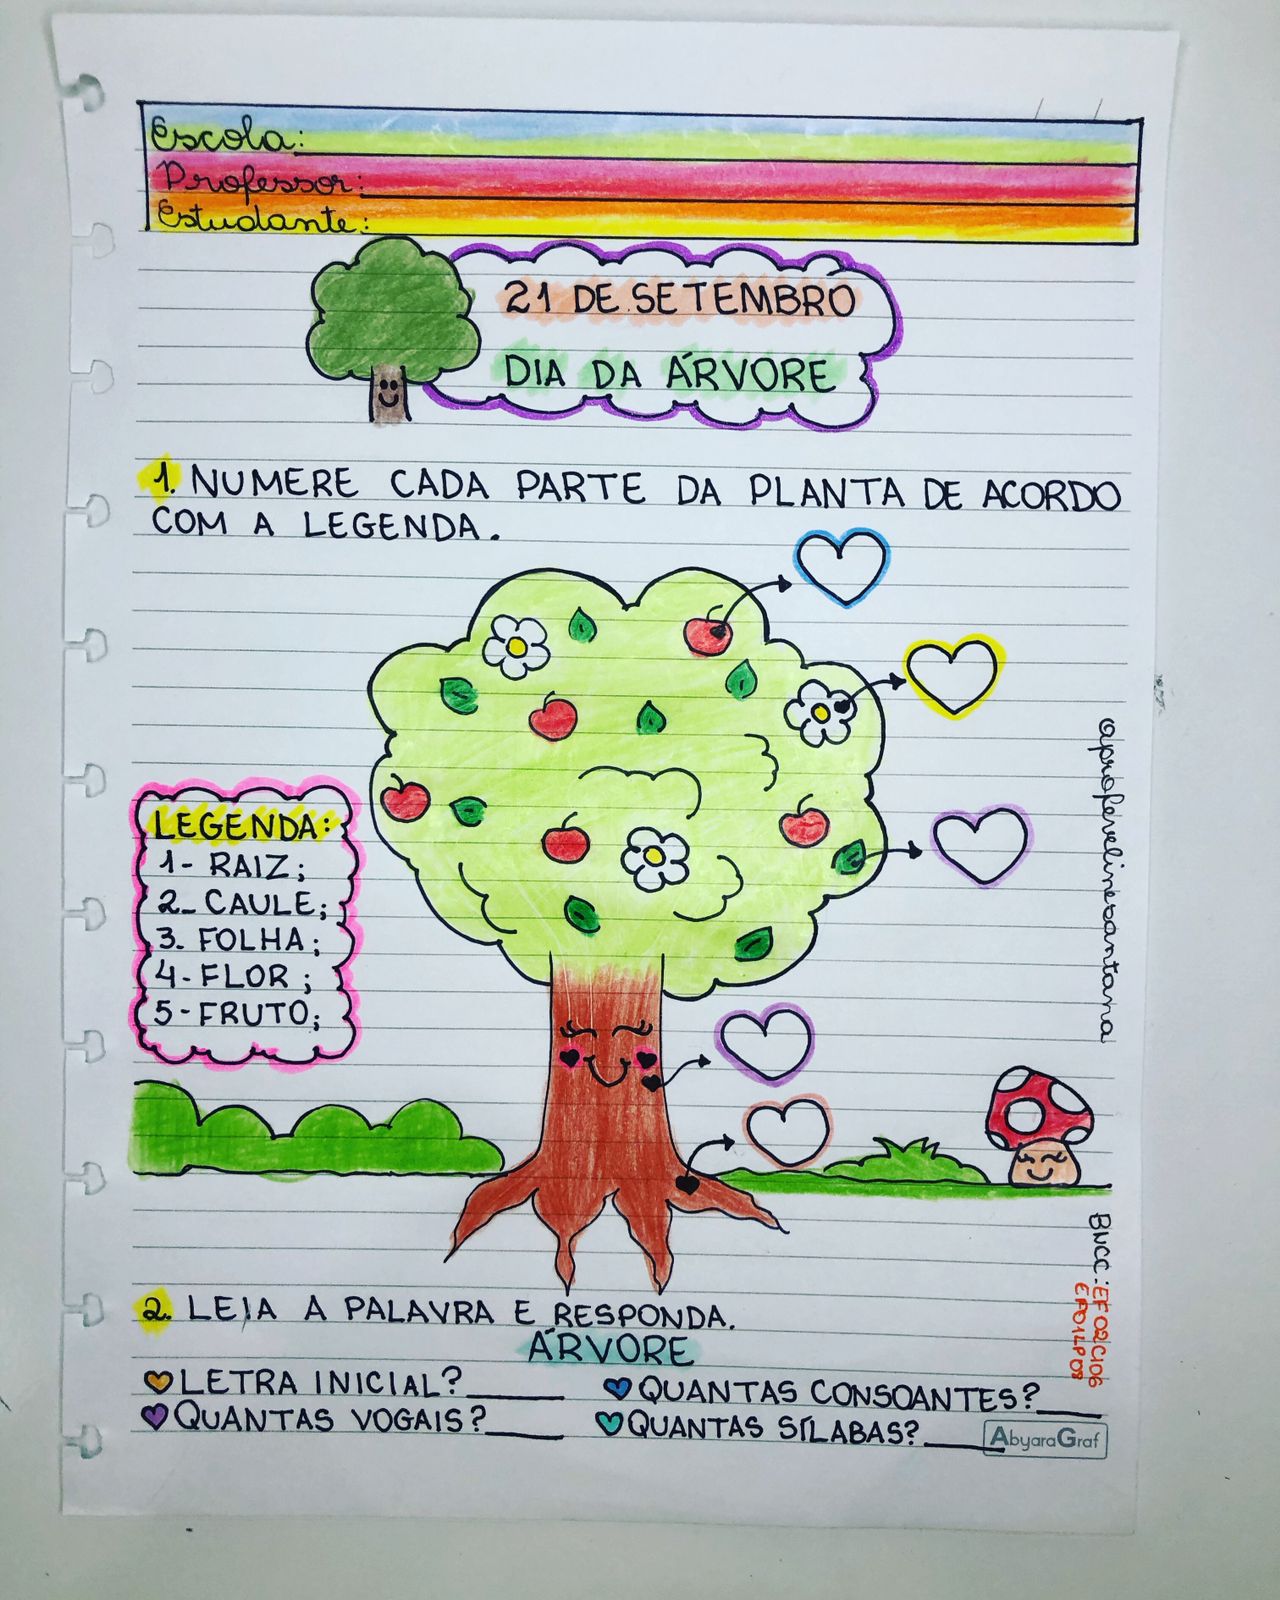 Escola:
Professor:
Estudante:
21 DE SETEMBRO
DIA DA ÁRVORE
1. NUMERE CADA PARTE DA PLANTA DE ACORDO
COM A LEGENDA.
LEGENDA:
1- RAIZ;
2- CAULE;
3. FOLHA;
4- FLOR;
5- FRUTO;
@profevelinesantana
BNCC: EF02CI06
EF01LP08
2. LEIA A PALAVRA E RESPONDA.
ÁRVORE
LETRA INICIAL?______ QUANTAS CONSOANTES?____
QUANTAS VOGAIS?_____ QUANTAS SÍLABAS?_____
AbyaraGraf